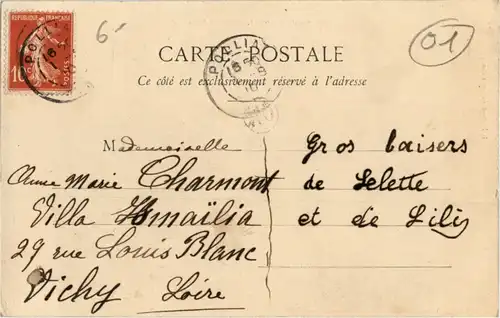 REPUBLIQUE FRANÇAISE
10
POSTES
POLLIA
6-
01
CARTE POSTALE
POLLIA
Ce côté est exclusivement réservé à l'adresse
Mademoiselle
Anne Marie Charmont
Villa Ismaïlia
29 rue Louis Blanc
Vichy Loire
Gros baisers
de Lelette
et de Lili